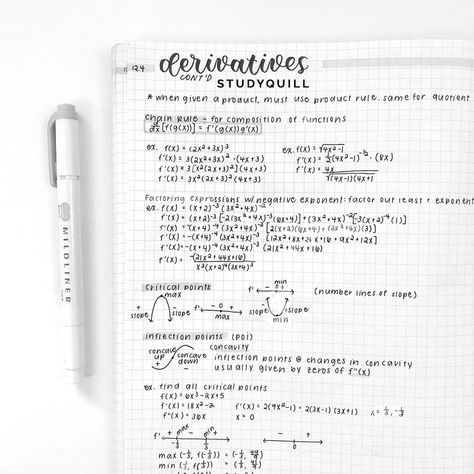 124
derivatives
CONT'D STUDYQUILL
* when given a product, must use product rule. same for quotient
Chain Rule – for composition of functions
d/dx [f(g(x))] = f'(g(x))g'(x)
ex. f(x) = (2x²+3x)³
f'(x) = 3(2x²+3x)² · (4x+3)
f'(x) = 3[x²(2x+3)²](4x+3)
f'(x) = 3x²(2x+3)²(4x+3)
ex. f(x) = √(4x²-1)
f'(x) = ½(4x²-1)^-½ · (8x)
f'(x) = 4x
√(4x-1)(4x+1)
Factoring expressions w/ negative exponent: factor out least + exponent
ex. f(x) = (x+2)⁻³ (3x²+4x)⁻²
f'(x) =
f'(x) =
f'(x) =
f'(x) =
Critical points
max
+ slope
- slope
f' - 0 +
max
f' min
- 0 +
- slope
+ slope
min
(number lines of slope)
Inflection points (POI)
concavity
concave up
+
concave down
-
inflection points @ changes in concavity
usually given by zeros of f''(x)
ex. find all critical points
f(x) = 6x³-2x+5
f'(x) = 18x²-2 f'(x) = 2(9x²-1) = 2(3x-1)(3x+1) x = ⅓, -⅓
f''(x) = 36x x = 0
f' + max - min +
-⅓ ⅓
- +
0
max (-⅓, f(-⅓)) =
min (⅓, f(⅓)) =
MILDLINER